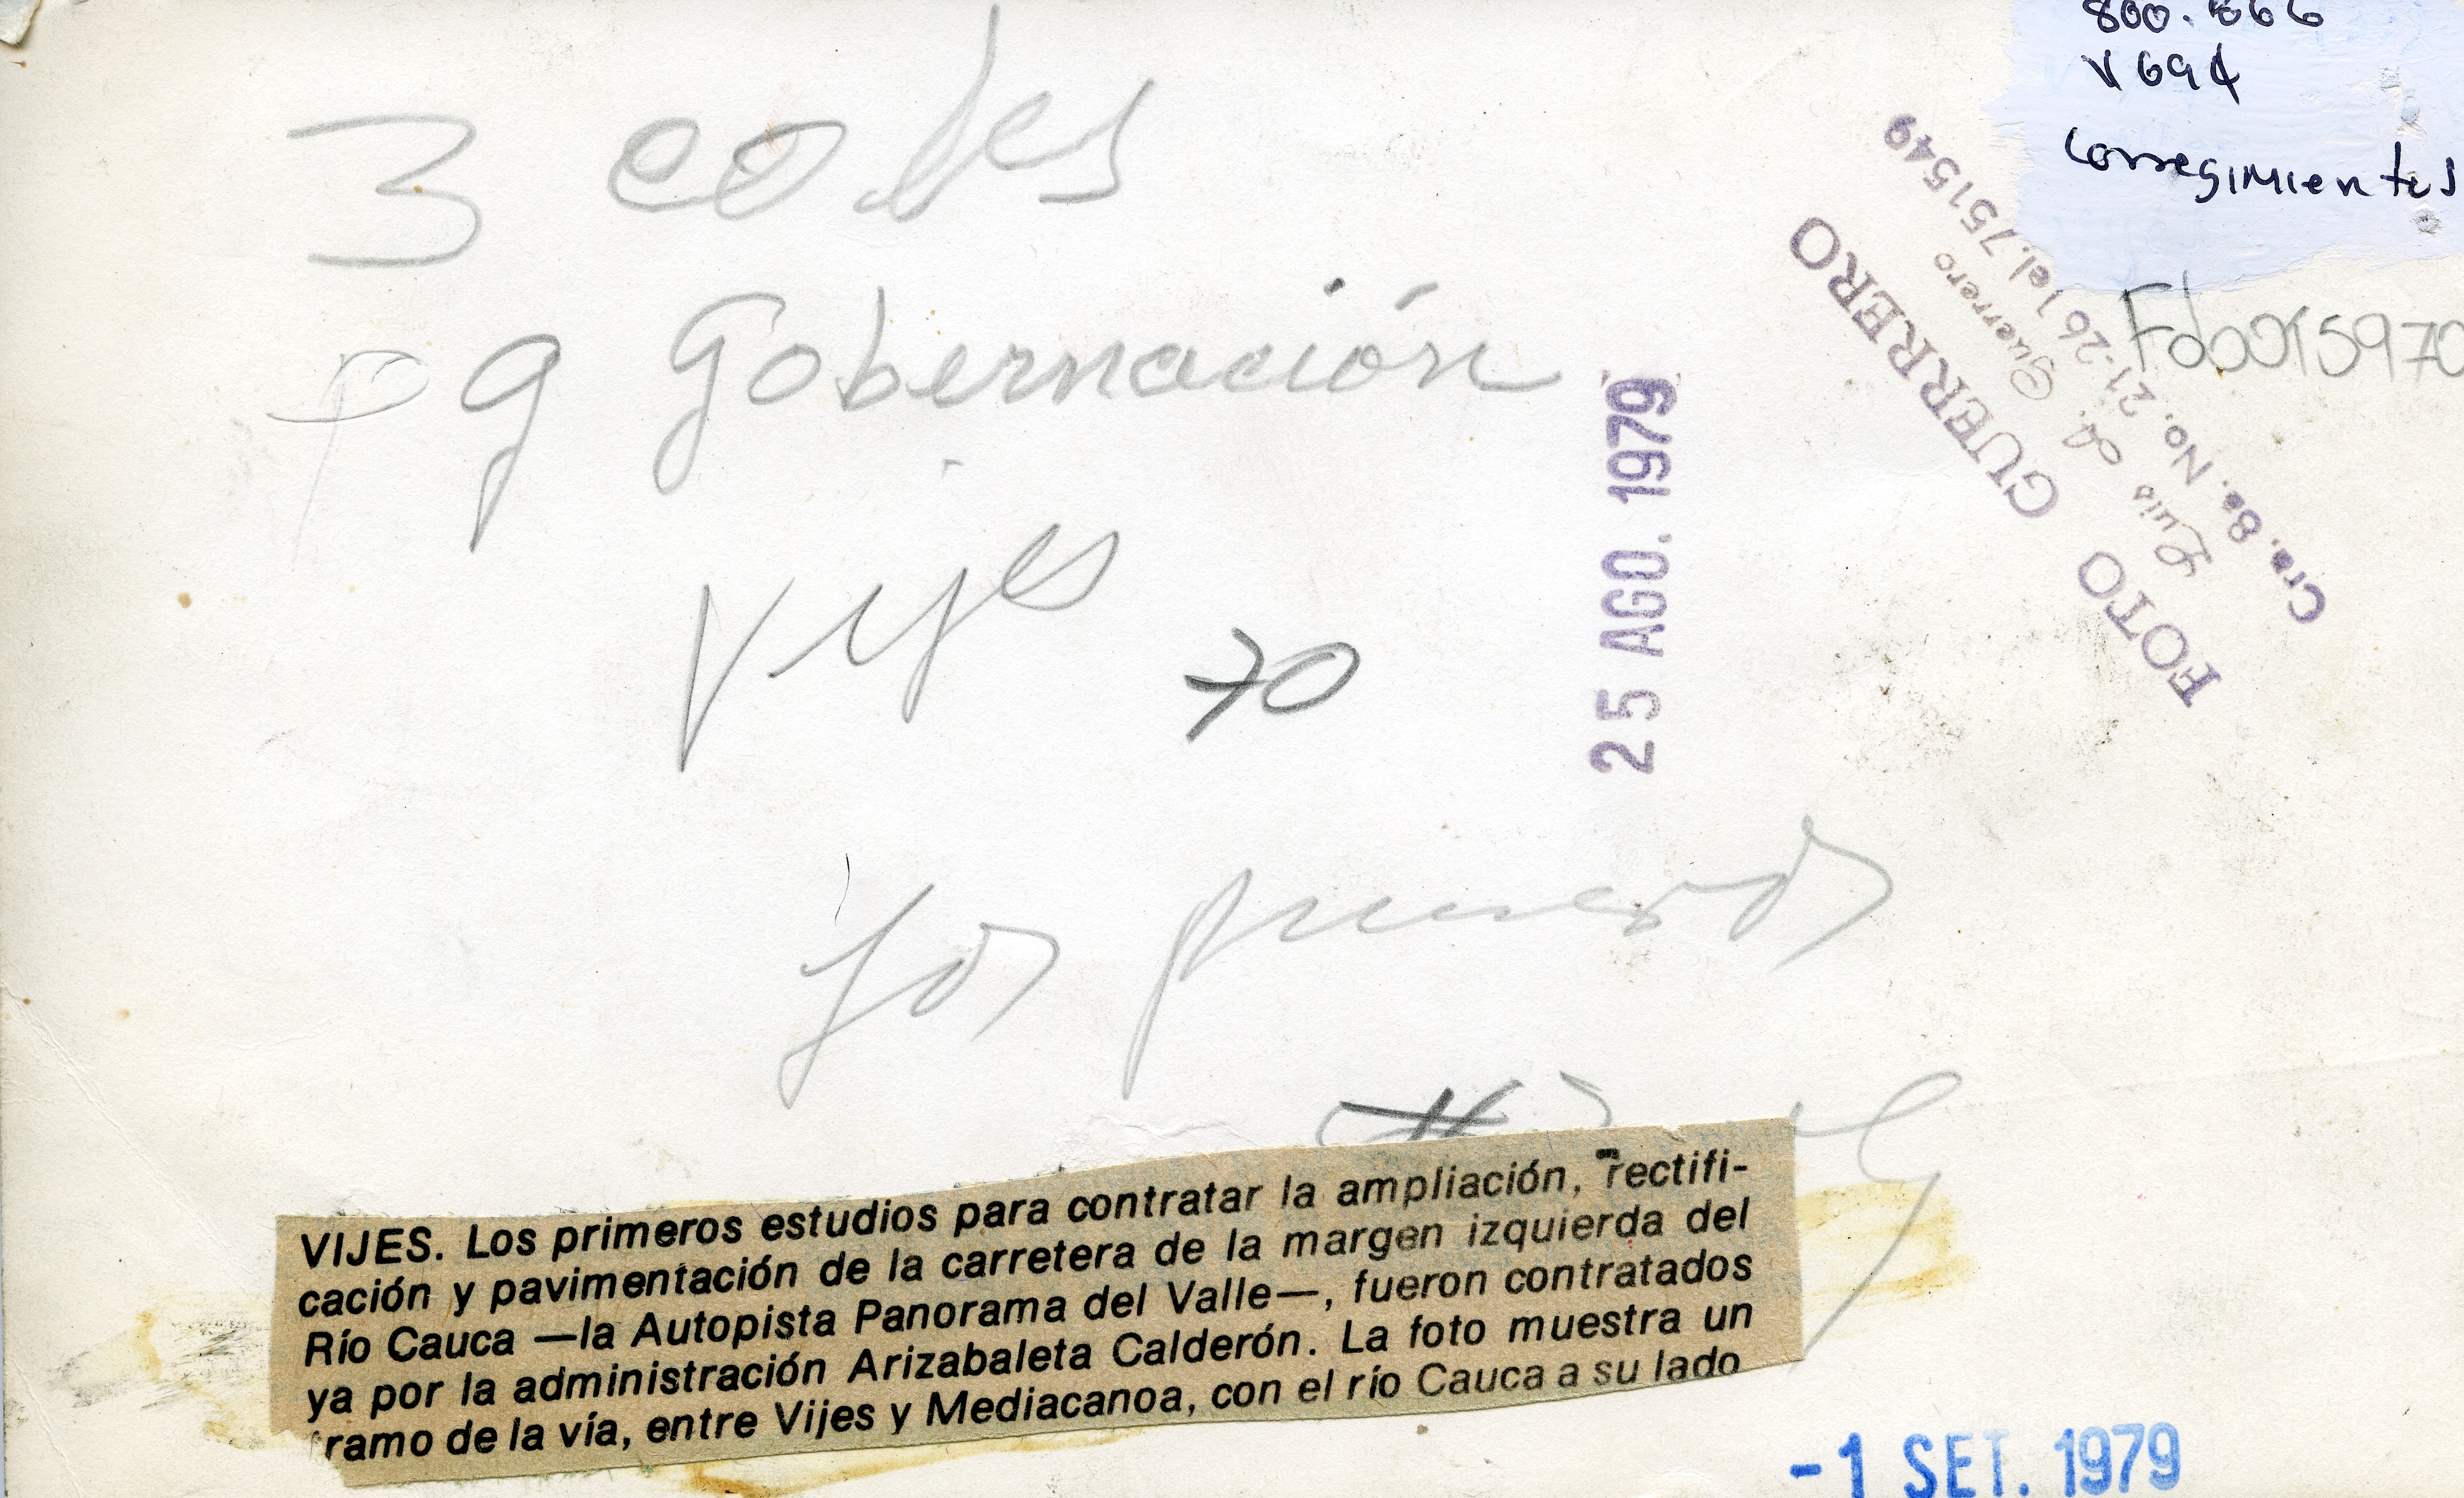 800.
V694
Corregimientos
Fdo0015970
3 cols
pg Gobernación
Vijes
70
25 AGO. 1979
FOTO GUERRERO
Luis A. Guerrero
Cra. 8a. No. 21-26 Tel. 751549
Los primeros
VIJES. Los primeros estudios para contratar la ampliación, rectifi-
cación y pavimentación de la carretera de la margen izquierda del
Río Cauca —la Autopista Panorama del Valle—, fueron contratados
ya por la administración Arizabaleta Calderón. La foto muestra un
tramo de la vía, entre Vijes y Mediacanoa, con el río Cauca a su lado
-1 SET. 1979